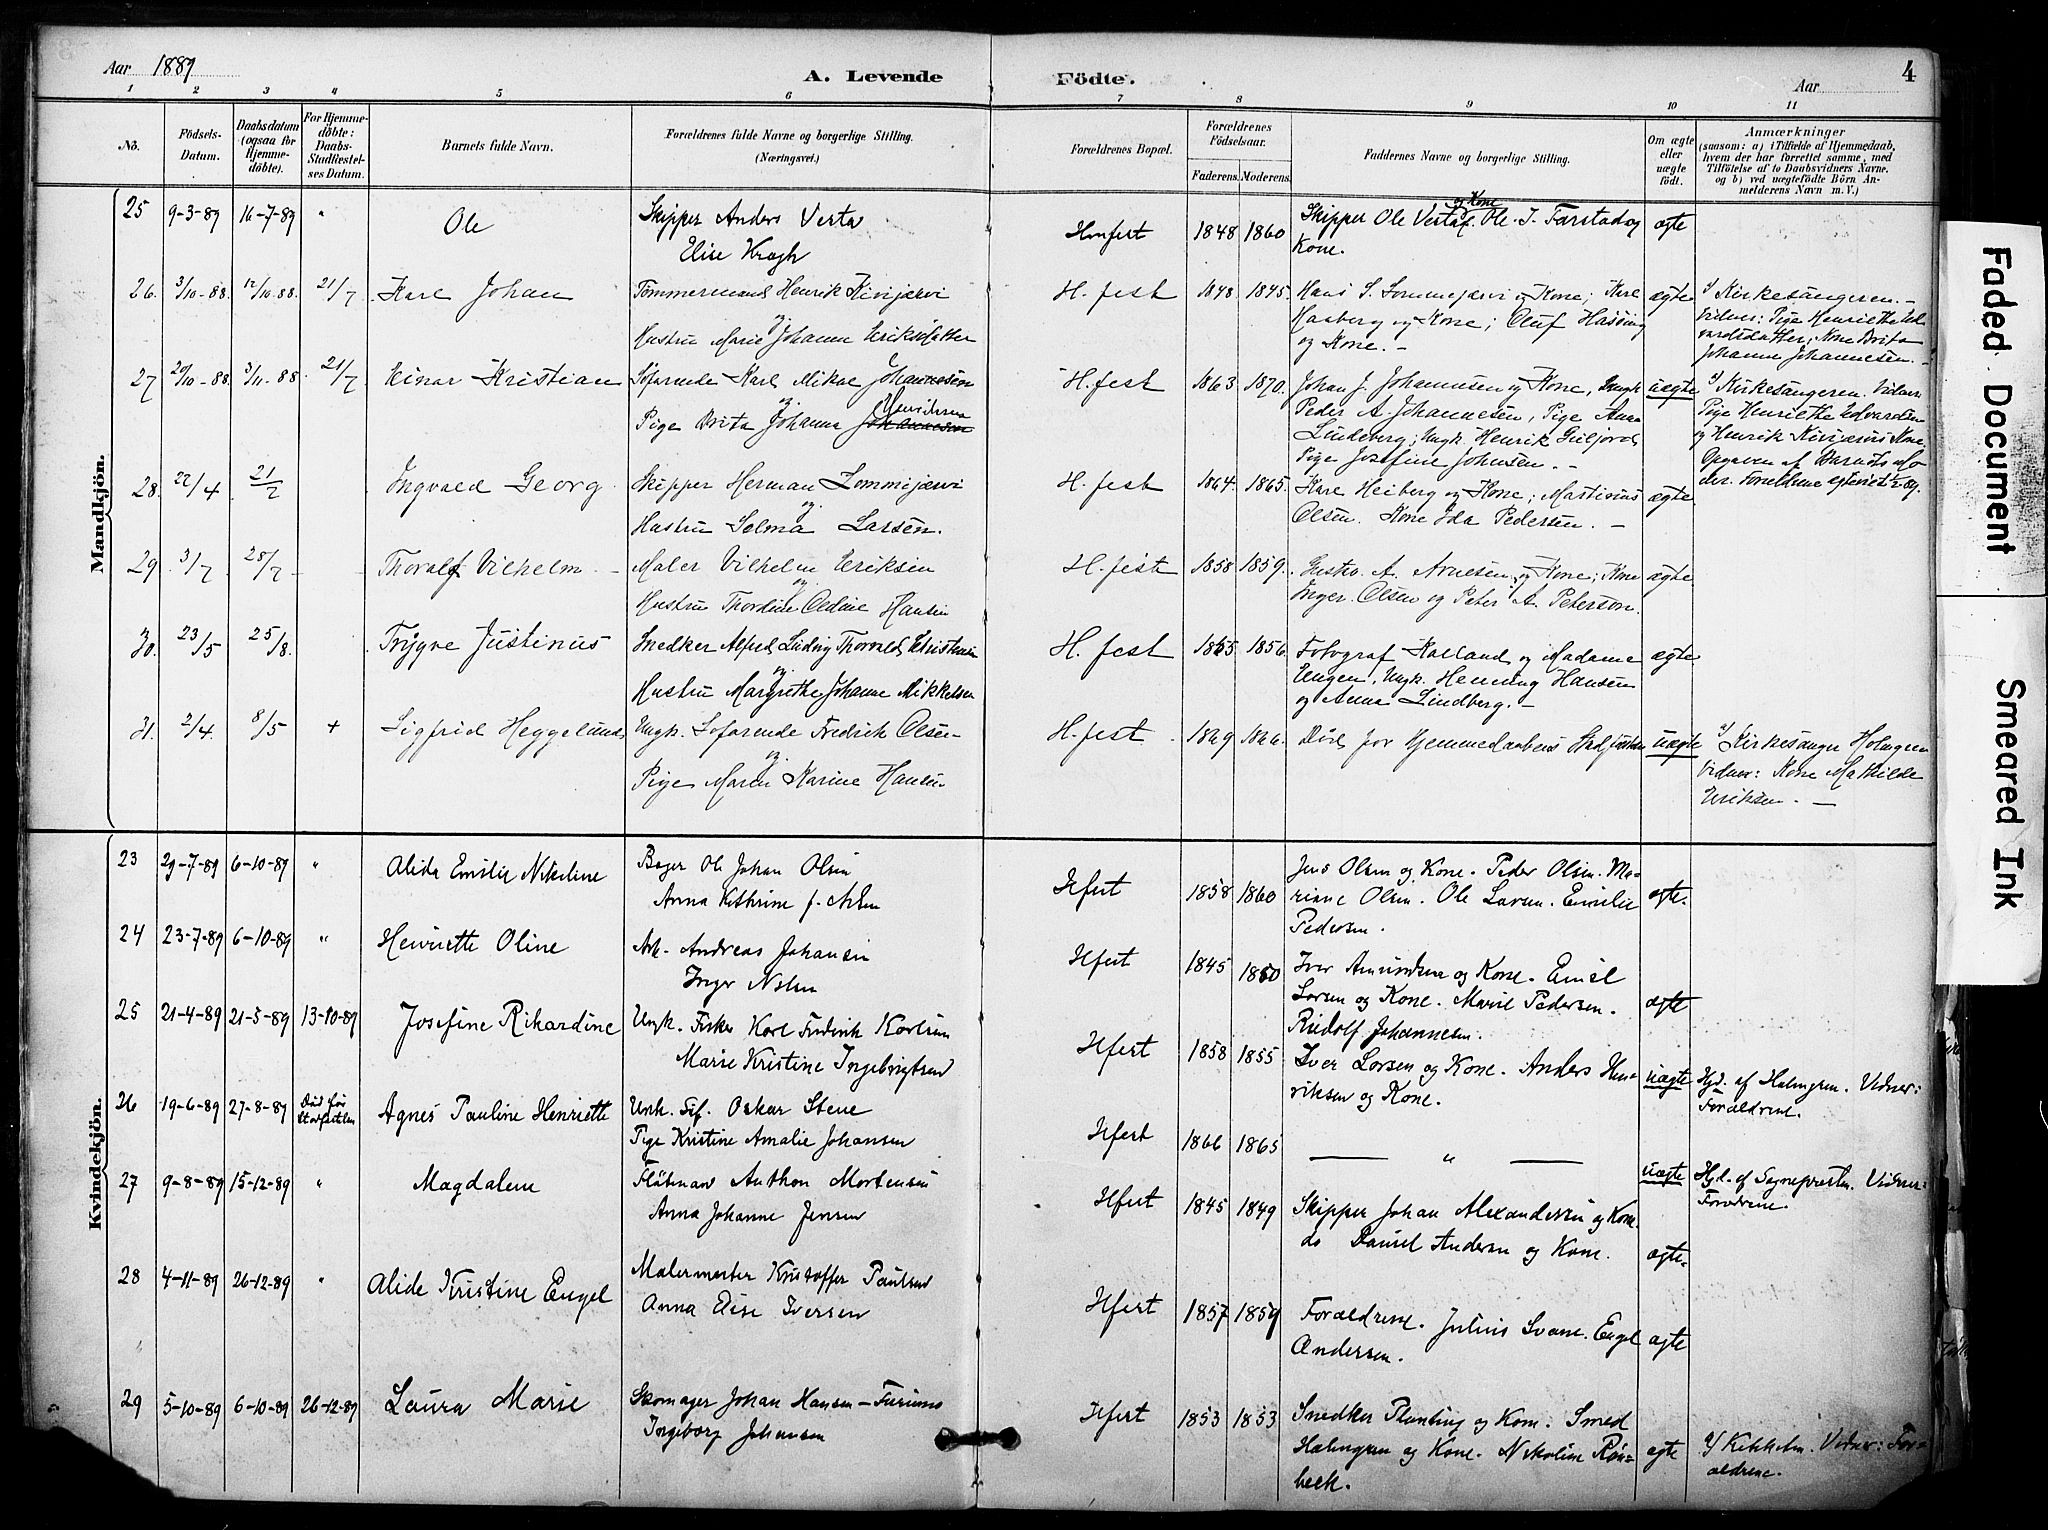 Aar 1889
A. Levende Födte.
Aar
4
1 2 3 4 5 6 7 8 9 10 11
No.
Födsels-Datum.
Daabsdatum (ogsaa for Hjemme-döbte).
For Hjemme-döbte: Daabs-Stadfæstel-ses Datum.
Barnets fulde Navn.
Forældrenes fulde Navne og borgerlige Stilling. (Næringsvei.)
Forældrenes Bopæl.
Forældrenes Födselsaar.
Faderens. Moderens.
Faddernes Navne og borgerlige Stilling.
Om ægte eller uægte födt.
Anmærkninger
(saasom: a) i Tilfælde af Hjemmedaab, hvem der har forrettet samme, med Tilföielse af to Daabsvidners Navne, og b) ved uægtefödte Börn An-melderens Navn m. V.)
Mandkjön.
25 9-3-89 16-7-89 " Ole Skipper Anders Vesta Hmfest 1848 1860 Skipper Ole Vesta og Kone. Ole J. Farstad og ægte
Elise Kragh Kone.
26. 3/10-88. 12/10 88. 21/7 Karl Johan Tømmermand Henrik Kivijærvi H. fest 1848 1845. Hans S. Lommejærvi og Kone; Karl ægte a/ Kirkesangeren.-
og Hustru Marie Johanne Eriksdatter Haaberg og Kone; Oluf Hasding Vidner: Pige Henriette Ed-
og Kone.- vardsdatter, Kone Brita
Johanne Johannesen.-
27 20/10-88. 3/11-88 21/7 Einar Kristian Søfarende Karl Mikal Johannesen H. fest 1863 1870. Johan J. Johannesen og Kone, Ungk. uægte a/ Kirkesangeren. Vidner:
og Pige Brita Johanna Henriksen Johannesen Peder A. Johannesen, Pige Anna Pige Henriette Edvardsen
Lindeberg; Ungk. Henrik og Henrik Kivijærvis Kone.
Pige Josefine Johnsen.- Opgaven af Barnets Mo-
28. 22/4 21/7 Ingvald Georg Skipper Herman Lommijærvi H. fest 1864. 1865. Karl Heiberg og Kone; Martinus ægte der. Forældrene
og Hustru Selma Larsen. Olsen. Kone Ida Pedersen.-
29. 3/7 28/7 Thoralf Vilhelm Maler Vilhelm Eriksen H. fest 1858 1859. Gustav A. Arnesen og Kone; Kone ægte
og Hustru Thordine Oldine Hansen Inger Olsen og Peter A. Peterson.
30. 23/5 25/8. Trygve Justinus Snedker Alfred Ludvig Thorvald Christensen H. fest 1855 1856. Fotograf Kalland og Madame ægte
og Hustru Margrethe Johanne Mikkelsen Engen, Ungk. Henning Hansen
og Anna Lindberg.-
31. 2/4. 8/5 + Sigfrid Heggelund Ungk. Søfarende Fredrik Olsen H. fest. 1869 1866. Død for Hjemmedaabens uægte a/ Kirkesanger Holmgren
og Pige Maren Karine Hansen. Vidner: Kone Mathilde
Eriksen.-
Kvindekjön.
23 29-7-89 6-10-89 " Alida Emilie Nikoline Bager Ole Johan Olsen Hfest 1858 1860 Jens Olsen og Kone. Peder Olsen. Ma- ægte.
Anna Kathrine f. Nilsen riane Olsen. Ole Larsen. Emilie
Pedersen.
24 23-7-89 6-10-89 " Henriette Oline Arb. Andreas Johansen Hfest 1845 1850 Iver Amundsen og Kone. Emil ægte
Inger Nilsen Larsen og Kone. Marie Pedersen.
Rudolf Johannesen.
25 21-4-89 21-5-89 13-10-89 Josefine Rikardine Ungk. Fisker Karl Fredrik Karlsen Hfest 1858 1855 Iver Larsen og Kone. Anders Hen- uægte Hjd. af Holmgren. Vidner:
Marie Kristine Ingebrigtsen riksen og Kone. Forældrene.
26 19-6-89 27-8-89 Død før Stadfæstelsen Agnes Pauline Henriette Unk. Søf. Oskar Stene Hfest 1866 1865 — " — uægte Hjd. af Sognepresten. Vidner:
Pige Kristine Amalie Johansen Forældrene.
27 9-8-89 15-12-89 " Magdalene Flötman Anthon Mortensen Hfest 1845 1849 Skipper Johan Alexandersen og Kone. ægte.
Anna Johanne Jensen do Daniel Andersen og Kone.
28 4-11-89 26-12-89 " Alide Kristine Engel Malermester Kristoffer Paulsen Hfest 1857 1859 Forældrene. Julius Svane. Engel ægte
Anna Elise Iversen Andersen.
29 5-10-89 6-10-89 26-12-89 Laura Marie Skomager Johan Hansen-Furumo Hfest 1853 1853 Snedker Planting og Kone. Smed ægte a/ Vidner: For-
Ingeborg Johansen Holmgren og Kone. Nikoline Rön- ældrene.
beck.
Faded Document
Smeared Ink